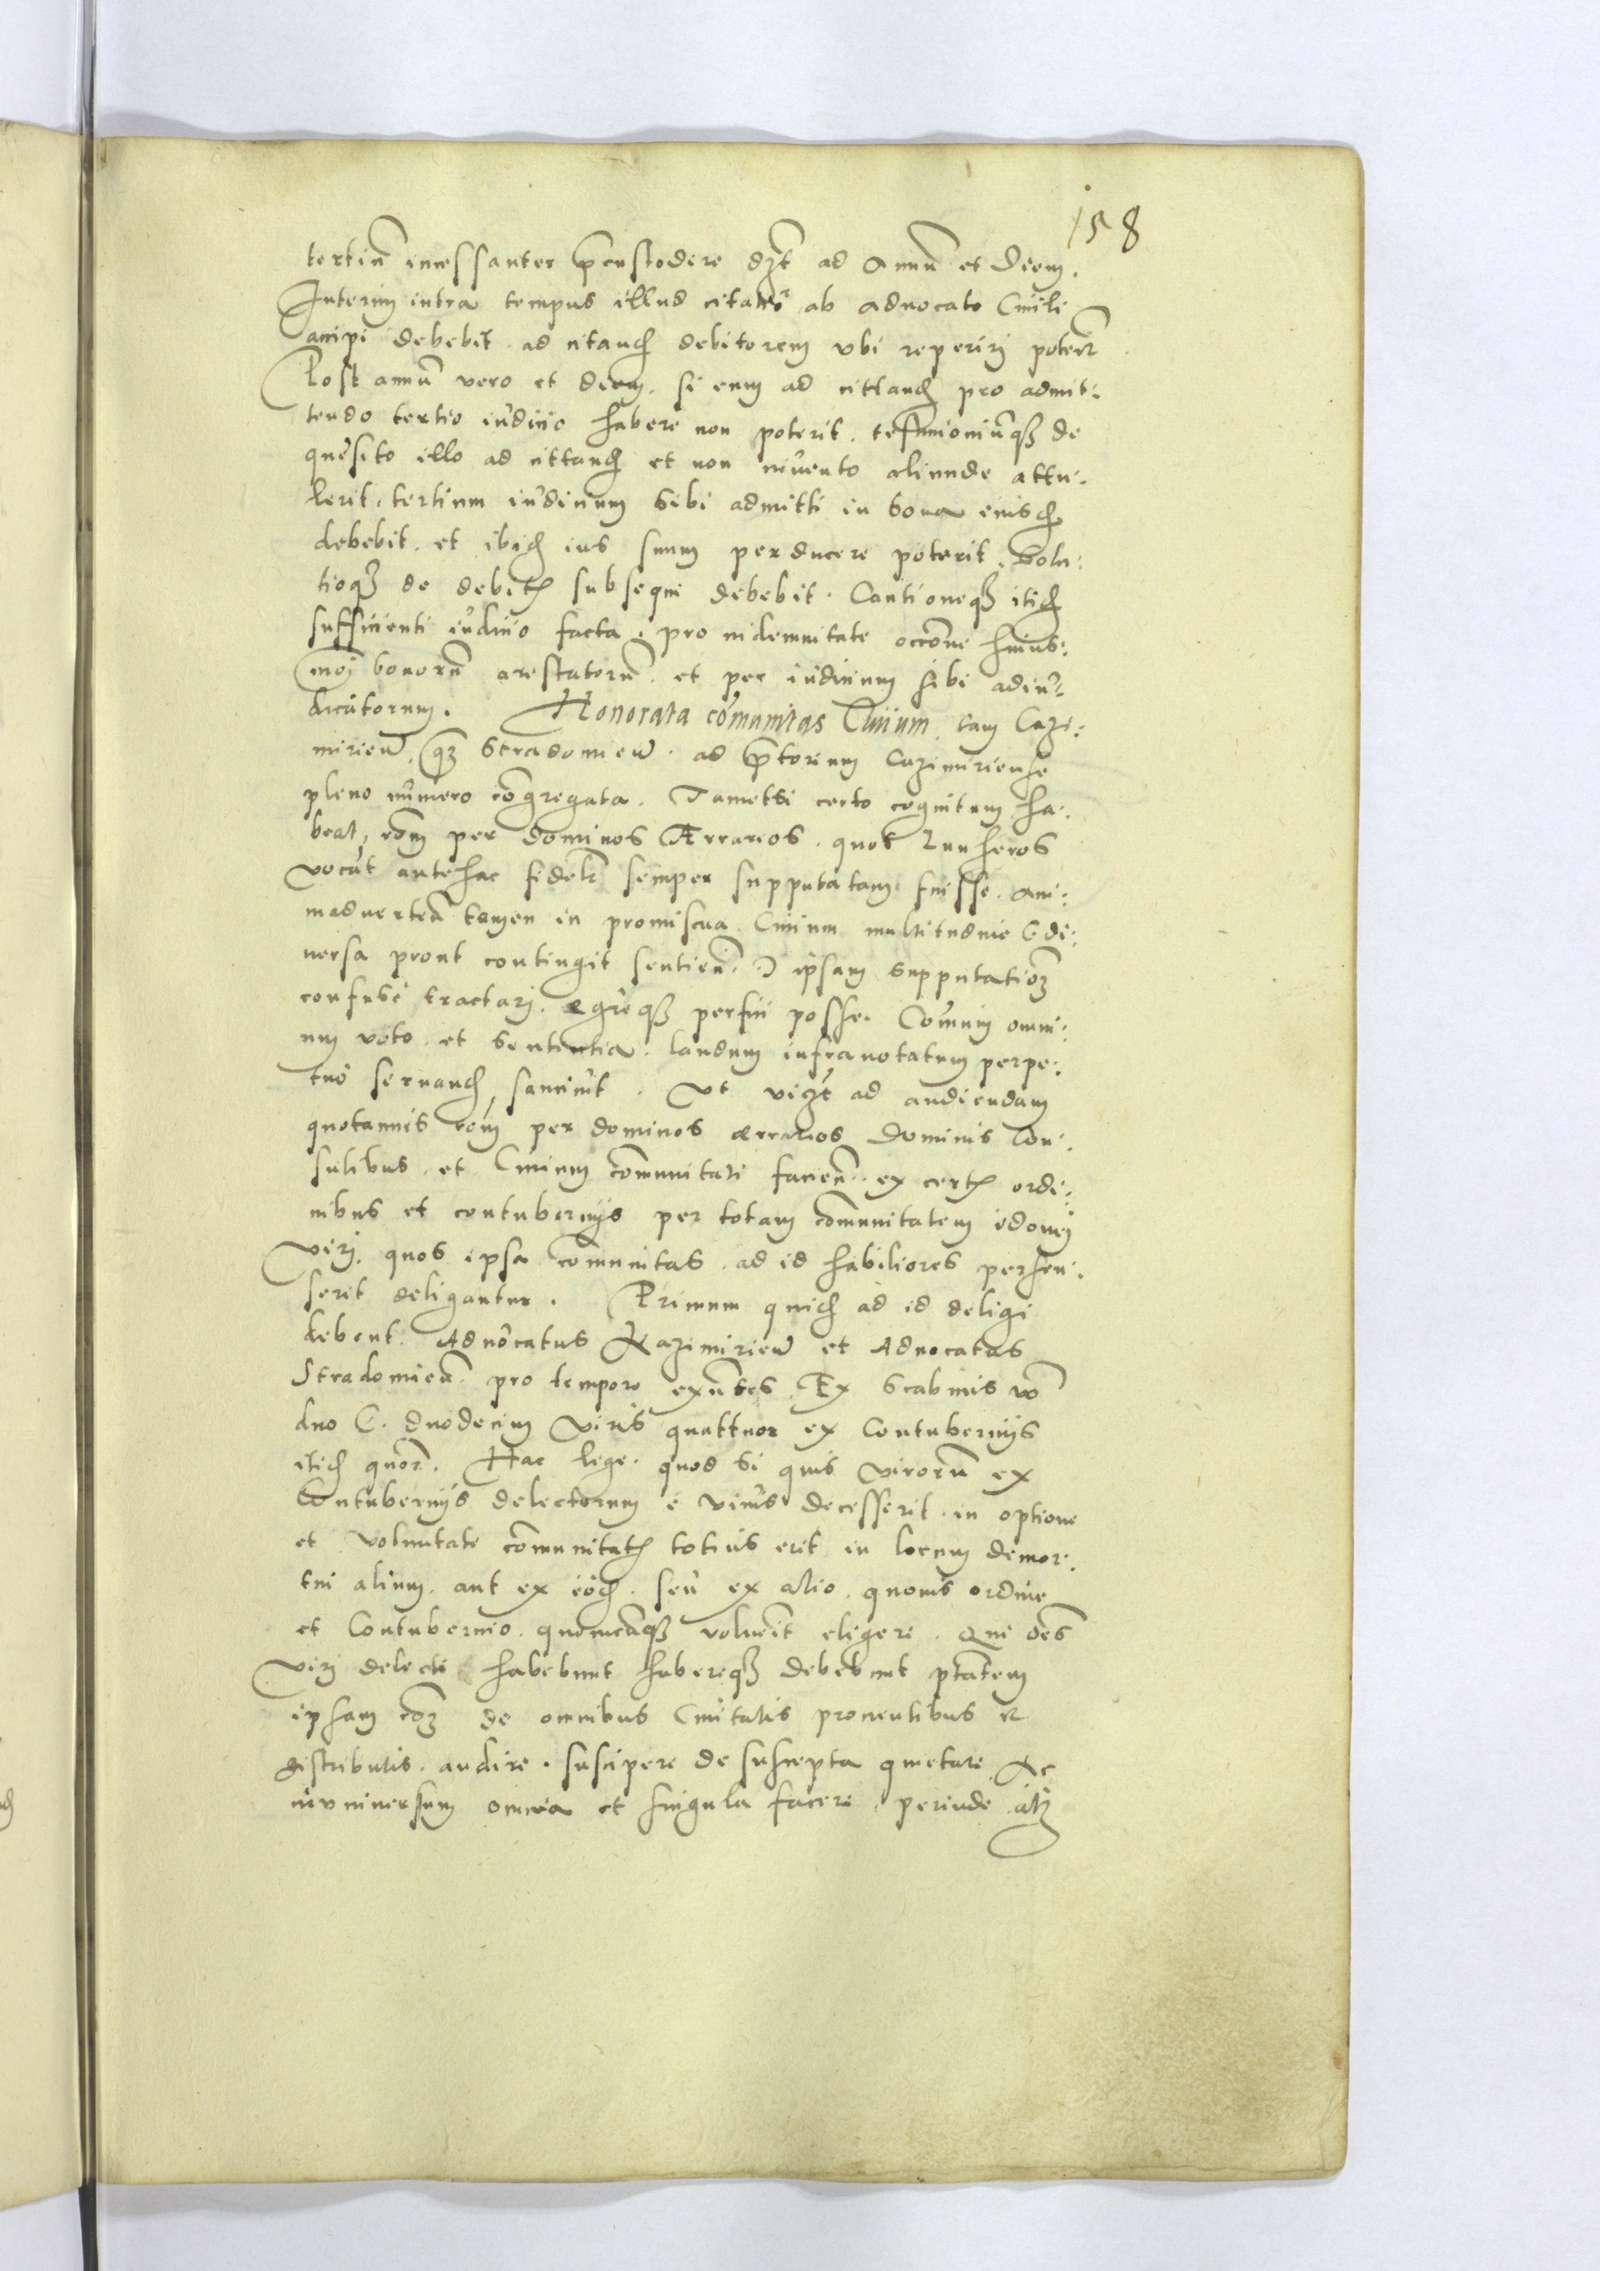 158
tertiū incessanter p̄custodire dz̄t ad Annū et Diem.
Interim intra tempus illud citatio ab aduocato Ciuili
accipi debebit ad citand debitorem vbi reperirj poterit
Post annū vero et diem. si eum ad cittand pro admit:
tendo tertio iudicio habere non poterit. testimoniūq3 de
quesito illo ad cittand et non inuento aliunde attu:
lerit, tertium iudicium sibi admitti in bona eiusd
debebit. et ibid ius suum perducere poterit. Solu:
tioq3 de debitis subsequi debebit. Cautioneq3 itid
sufficienti iudicio facta. pro indemnitate occōne huius:
mōj bonorū arestatorū. et per iudicium sibi adiu:
dicatorum. Honorata cōmunitas Ciuium tam Cazi:
mirien̄ q̄3 Stradomien̄. ad p̄torium Cazimiriense
pleno numero cōgregata. Tametsi certo cognitum ha:
beat, rōm per dominos Ærarios. quos Lunheros
vocāt antehac fideliter semper supputatam fuisse. ani:
maduerteñ tamen in promiscua Ciuium multitudine & di:
uersa prout contingit sentien̄. ipsam supputatiōm
confuse tractarj. egreq3 perfici posse. Comuni omni:
um voto et sententia. laudum infranotatum perpe:
tuo seruand sanciūt. Vt viz̄t ad audiendam
quotannis rōm per dominos ærarios Dominis Con:
sulibus et Ciuium cōmunitati facien̄. ex certis ordi:
nibus et contubernijs per totam cōmunitatem idonej
virj. quos ipsa cōmunitas ad id habiliores persen:
serit deligantur. Primum quid ad id deligi
debent. Aduocatus Kazimirien̄ et Aduocatus
Stradomien̄ pro tempore exn̄tes. Ex Scabinis vō
duo E. duodecim viris quattuor ex Contubernijs
itid quōr. Hac lege. quod si quis virorū ex
Contubernijs delectorum e viuis decesserit. in optione
et voluntate cōmunitatis totius erit in locum demor:
tui alium. aut ex eōd. seu ex alio quouis ordine
et Contubernio. quemcūq3 voluerit eligere. Qui ōes
virj delecti habebunt habereq3 debebunt ptātem
ipsam rōm de omnibus Ciuitatis prouentibus et
distributis. audire. suscipere de suscepta quietare. Ac
in vniuersum omnia et singula facere. perinde at3